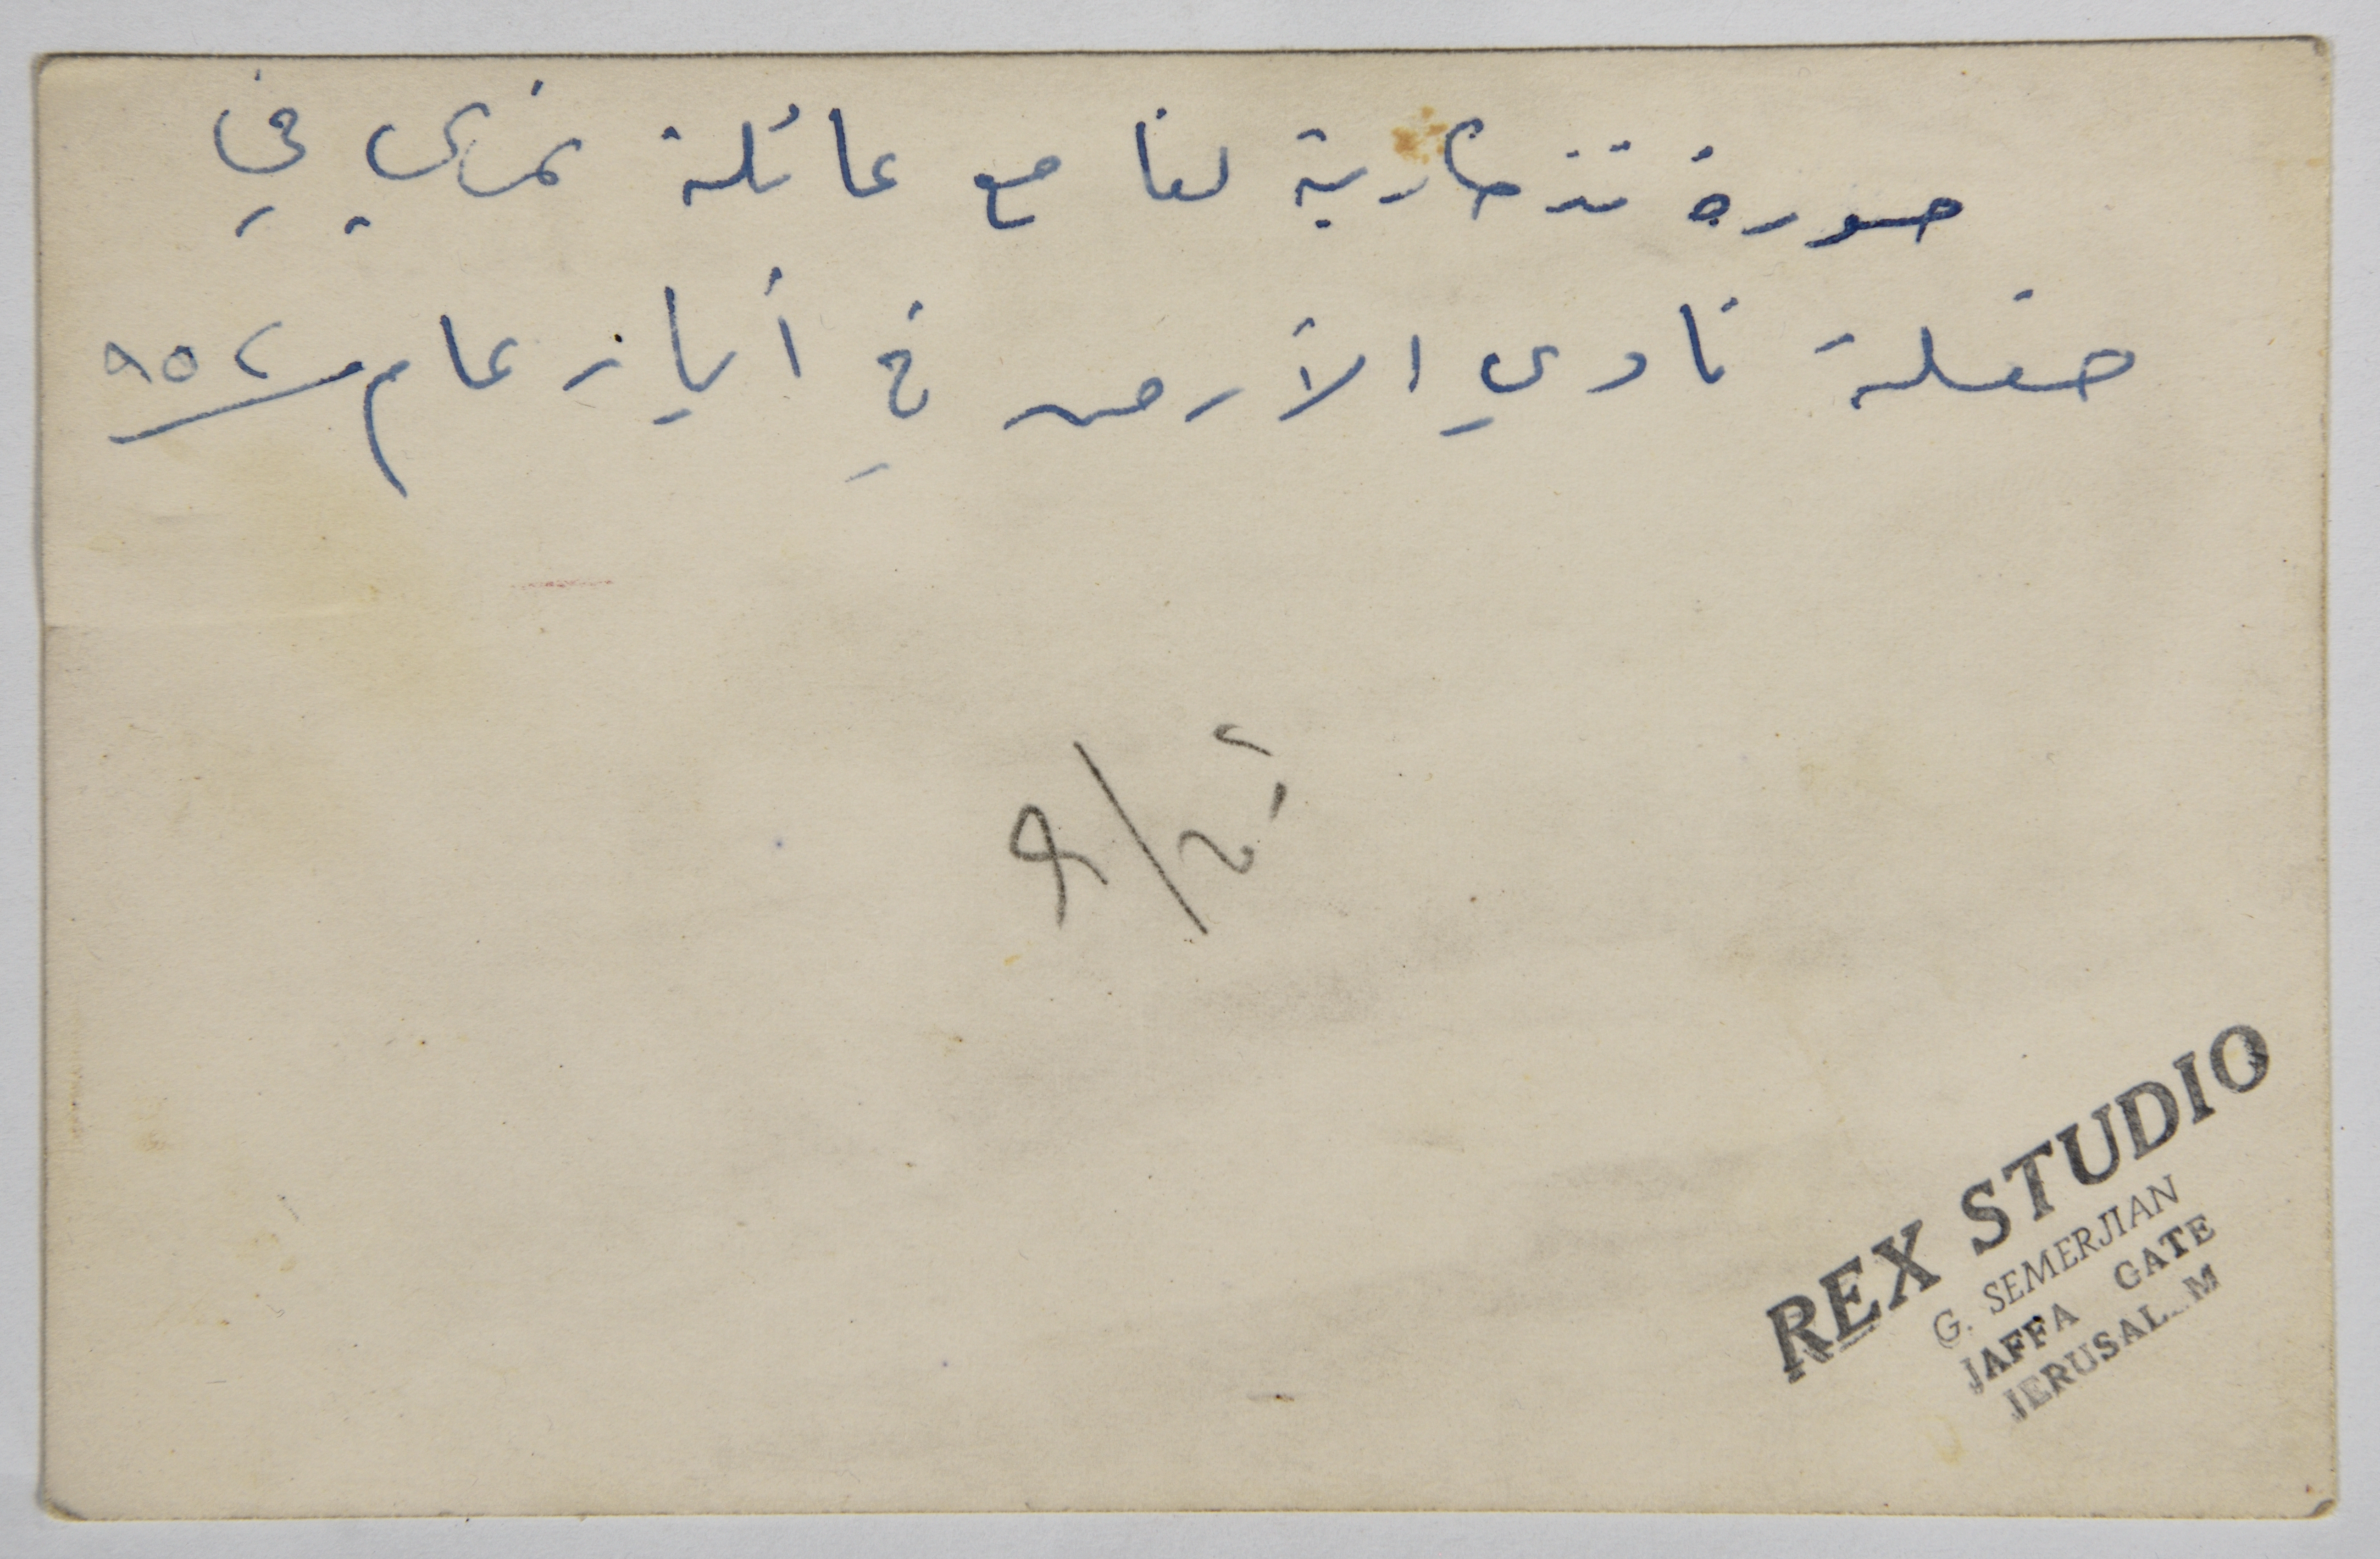 صورة تذكارية لنا مع عائلة في
حفلة نادي الأرمن في أيار عام ٩٥٢
REX STUDIO
G. SEMERJIAN
JAFFA GATE
JERUSAL M